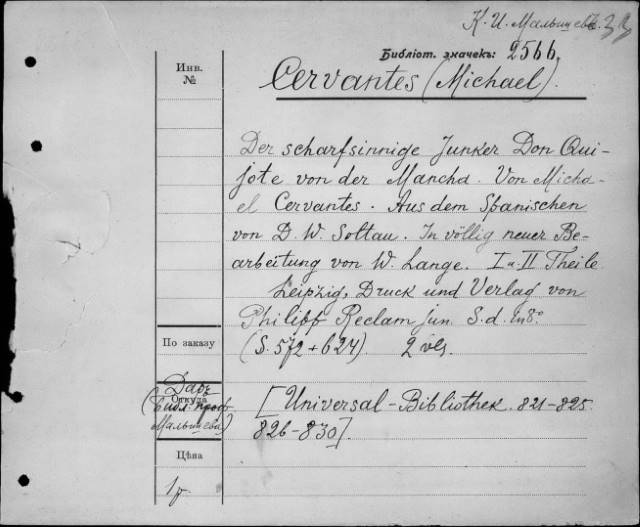 К. И. Малышевъ. 33
Библіот. значекъ: 2566
Инв.
№
Cervantes (Michael).
Der scharfsinnige Junker Don Qui-
jote von der Mancha. Von Micha-
el Cervantes. Aus dem Spanischen
von D. W. Soltau. In völlig neuer Be-
arbeitung von W. Lange. I u. II Theile
Leipzig, Druck und Verlag von
Philipp Reclam jun. S.d. in 8º
По заказу
(S. 572 + 624) 2 vls.
Даръ
Откуда
(библ. проф.
Малышева)
[Universal-Bibliothek. 821-825.
826-830].
Цѣна
1 р